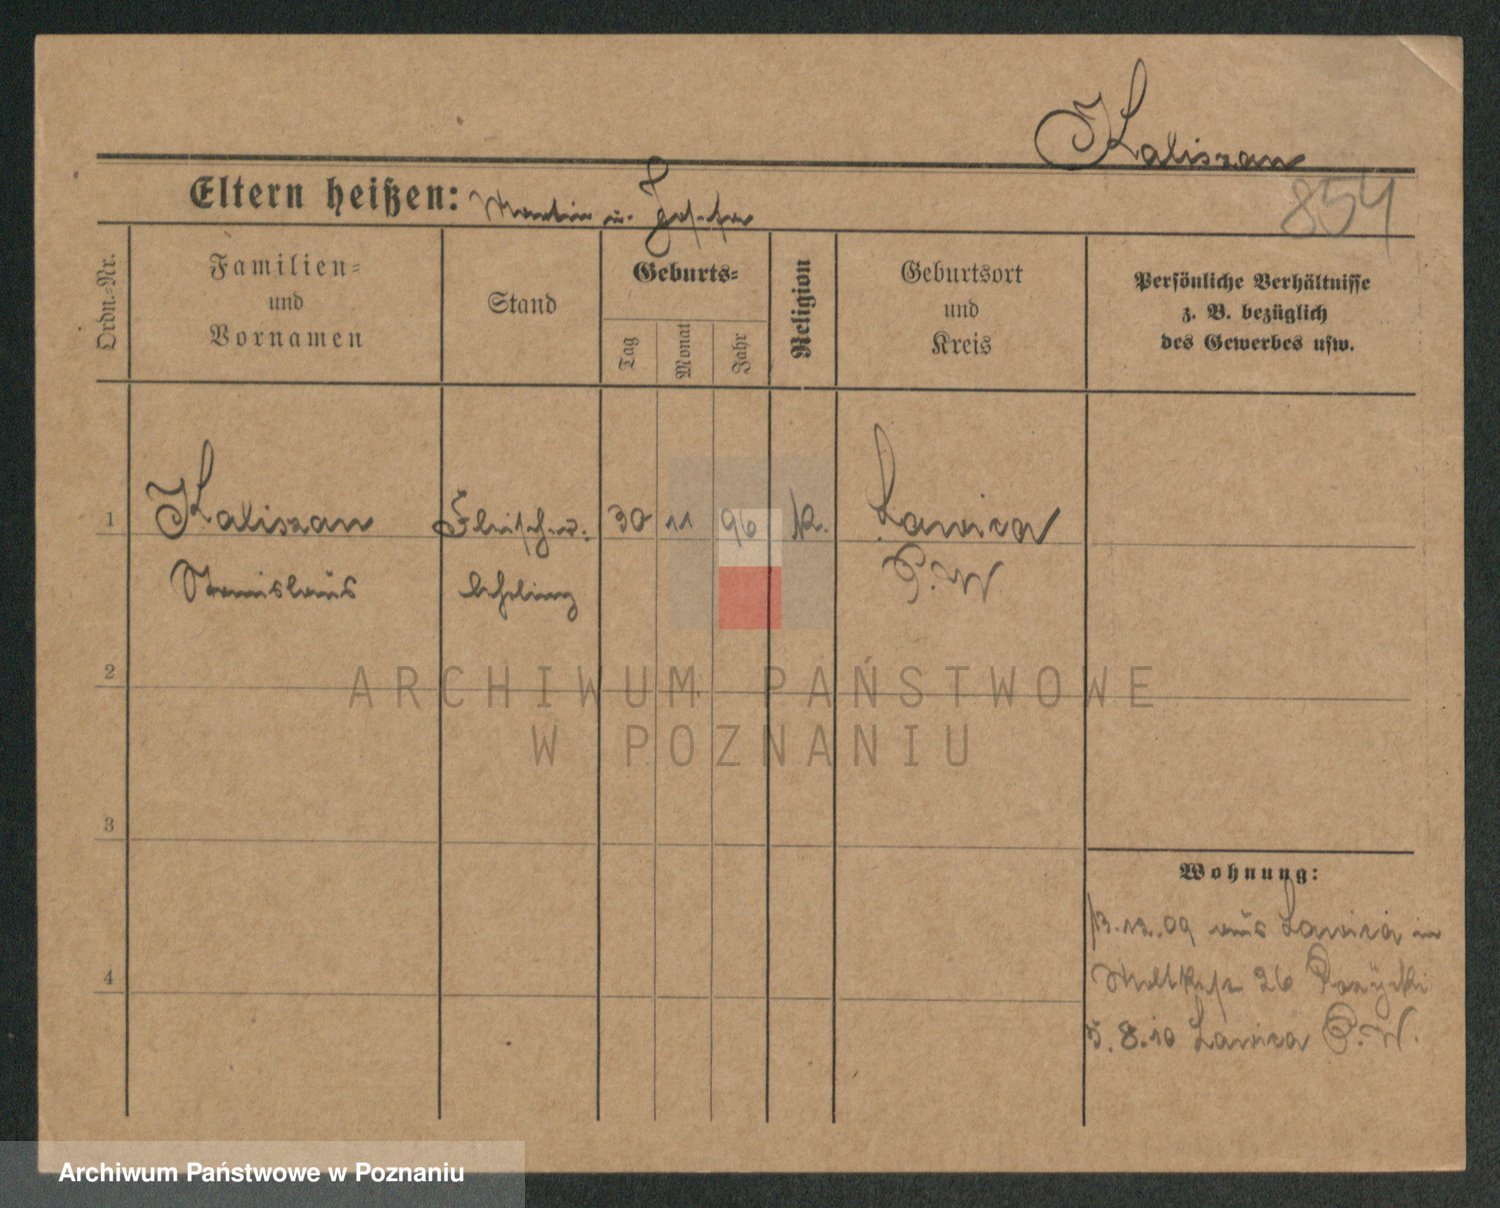 Kaliszan
854
Eltern heißen: Martin u. Josefa
Ordn.-Nr.
Familien-
und
Vornamen
Stand
Geburts-
Tag
Monat
Jahr
Religion
Geburtsort
und
Kreis
Persönliche Verhältnisse
z. B. bezüglich
des Gewerbes usw.
1
Kaliszan
Stanislaus
Fleischer-
lehrling
30 11 96
k.
Lawica
P. W
2
3
4
Wohnung:
13.12.09 aus Lawica in
26
5.8.10 Lawica P. W.
ARCHIWUM PAŃSTWOWE
W POZNANIU
Archiwum Państwowe w Poznaniu